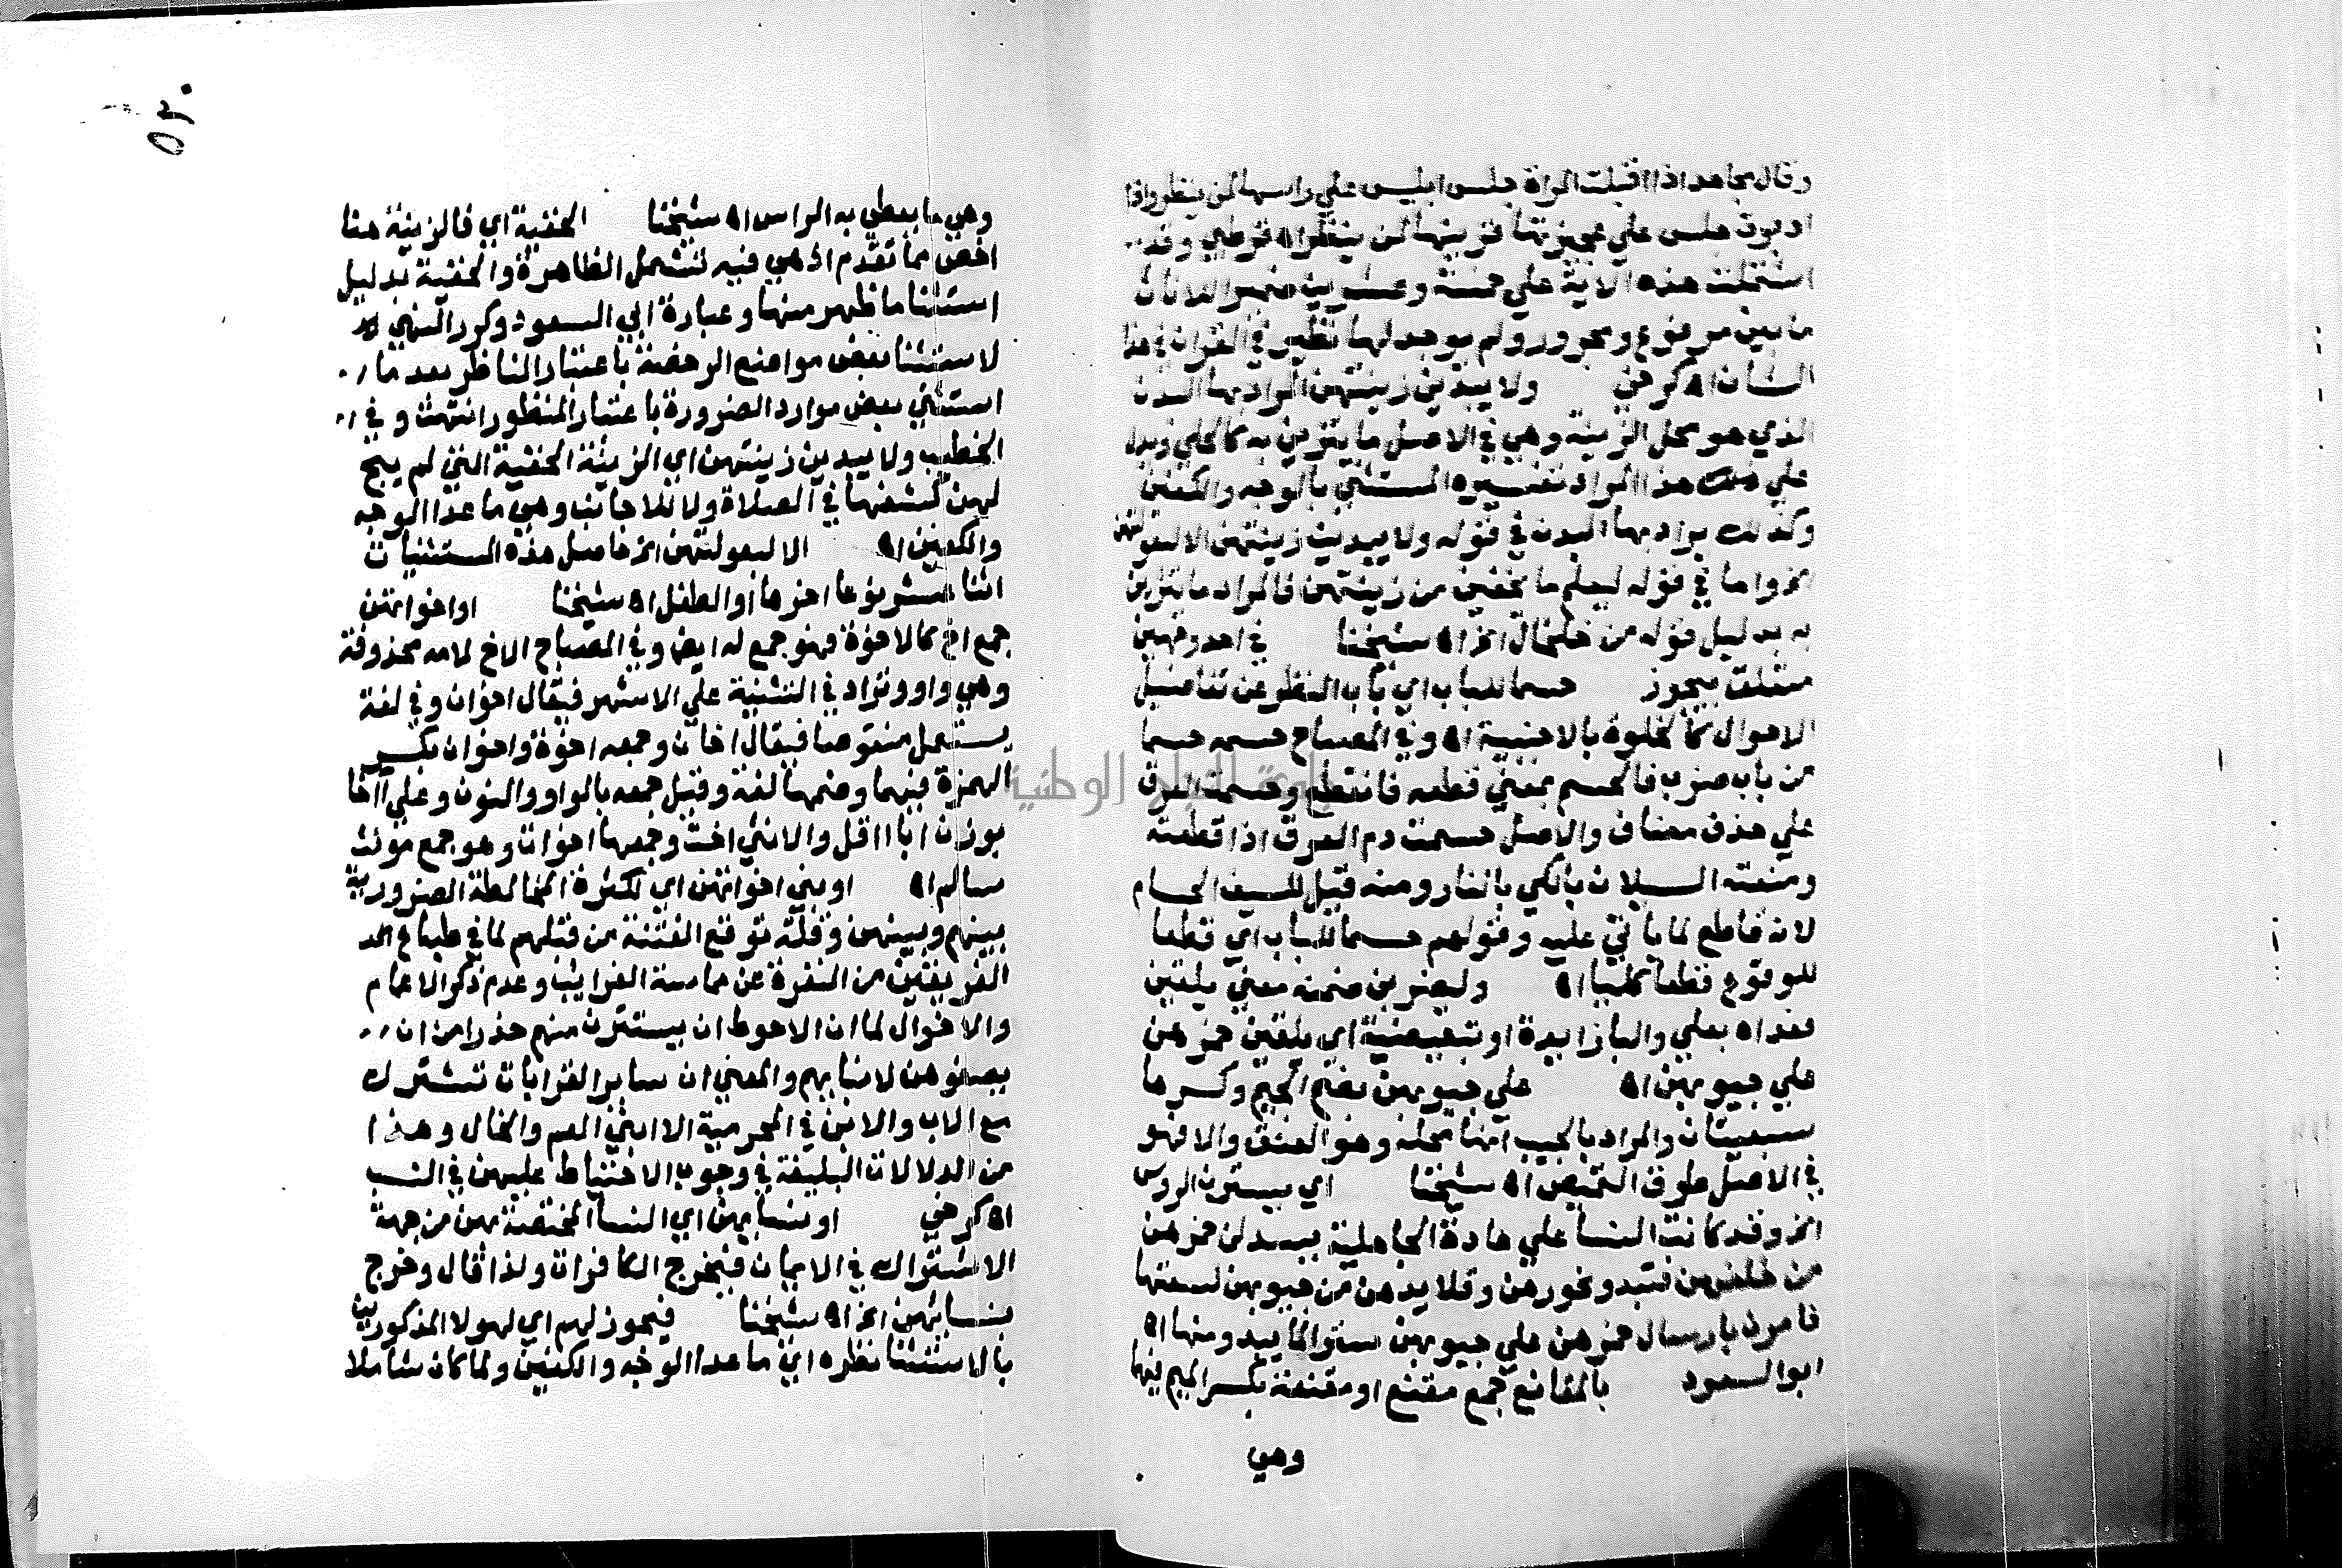 وقال مجاهد اذا اقبلت المراة جلس ابليس علي راسها لمن ينظر واذا
ادبرت جلس علي عجيزتها فزينها لمن ينظر اه قرطبي وقد
اشتملت هذه الاية علي خمسة وعشرين ضميرا للاناث
ما بين مرفوع ومجرور ولم يوجد لها نظير في القران في هذا
الشان اه كرخي ولا يبدين زينتهن المراد بها البدن
الذي هو محل الزينة وهي في الاصل ما يتزين به كالحلي ويدل
علي ذلك هذا المراد تفسيره المستثني بالوجه والكفين
وكذلك يراد بها البدن في قوله ولا يبدين زينتهن الا لبعولتهن
الخ واما في قوله ليعلم ما يخفين من زينتهن فالمراد ما يتزين
به بدليل قوله من خلخال الخ اه شيخنا في احد وجهين
متعلق بيجوز حسما للباب اي باب النظر عن تفاصيل
الاحوال كالخلوة بالاجنبية اه وفي المصباح حسمه حسما
من باب ضرب فانحسم بمعني قطعه فانقطع وحسمت العرق
علي حذف مضاف والاصل حسمت دم العرق اذا قطعته
ومنعته السيلان بالكي بالنار ومنه قيل للسيف الحسام
لانه قاطع لما ياتي عليه وقولهم حسما للباب اي قطعا
للوقوع قطعا كليا اه وليضربن ضمنه معني يلقين
فعداه بعلي والبا زايدة او تبعيضية اي يلقين خمرهن
علي جيوبهن اه علي جيوبهن بضم الجيم وكسرها
سبعيتان والمراد بالجيب هنا محله وهو العنق والا فهو
في الاصل طوق القميص اه شيخنا اي يسترن الروس
الخ وقد كانت النسا علي عادة الجاهلية يسدلن خمرهن
من خلفهن فتبدو نحورهن وقلايدهن من جيوبهن لسعتها
فامرن بارسال خمرهن علي جيوبهن سترا لما يبدو منها اه
ابو السعود بالمقانع جمع مقنع او مقنعة بكسر الميم فيهما
وهي
وهي ما يغطي به الراس اه شيخنا الخفية اي فالزينة هنا
اخص مما تقدم اذ هي فيه تشمل الظاهرة والخفية بدليل
استثنا ما ظهر منها وعبارة ابي السعود وكرر النهي
لاستثنا بعض مواضع الرخصة باعتبار الناظر بعد ما
استثني بعض موارد الضرورة باعتبار المنظور انتهت وفي
الخطيب ولا يبدين زينتهن اي الزينة الخفية التي لم يبح
لهن كشفها في الصلاة ولا للاجانب وهي ما عدا الوجه
والكفين اه الا لبعولتهن الخ حاصل هذه المستثنيات
اثنا عشر نوعا اخرها او الطفل اه شيخنا او اخوانهن
جمع اخ كالاخوة فهو جمع له ايض وفي المصباح الاخ لامه محذوفة
وهي واو وتزاد في التثنية علي الاشهر فيقال اخوان وفي لغة
يستعمل منقوصا فيقال اخان وجمعه اخوة واخوان بكسر
الهمزة فيهما وضمها لغة وقيل جمعه بالواو والنون وعلي آخا
بوزن ابا اقل والانثي اخت وجمعها اخوات وهو جمع مونث
سالم اه او بني اخوانهن اي لكثرة المخالطة الضرورية
بينهم وبينهن وقلة توقع الفتنة من قبلهم لما في طباع
الفريقين من النفرة عن مماسة القرايب وعدم ذكر الاعمام
والاخوال لما ان الاحوط ان يستترن منهم حذرا من ان
يصفوهن لابنايهم والمعني ان ساير القرابات تشترك
مع الاب والابن في المحرمية الا ابني العم والخال وهذا
من الدلالات البليغة في وجوب الاحتياط عليهن في النسب
اه كرخي او نسايهن اي النسا المختصة بهن من جهة
الاشتراك في الايمان فيخرج الكافرات ولذا قال وخرج
بنسائهن الخ اه شيخنا فيجوز لهم اي لهولا المذكورين
بالاستثنا نظره اي ما عدا الوجه والكفين ولما كان شاملا